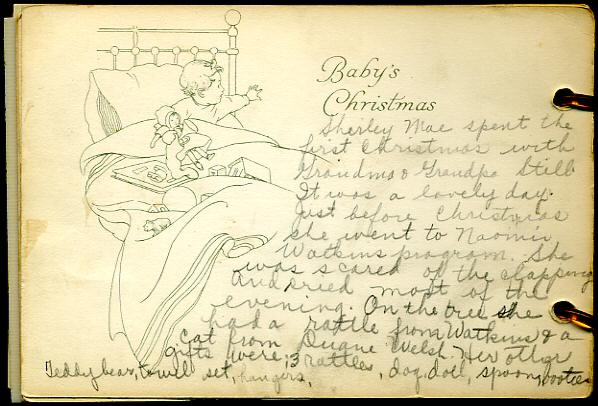 Baby's
Christmas
Shirley Mae spent the
first Christmas with
Grandma & Grandpa Still
It was a lovely day.
Just before Christmas
she went to Naomi
Watkins program. She
was scared of the clapping
and cried most of the
evening. On the tree she
had a rattle from Watkins & a
cat from Duane Welsh. Her other
gifts were; 3 rattles, dog, doll, spoon, booties
Teddy bear, towel set, hangers,